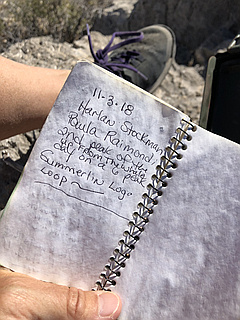 11-3-18
Harlan Stockman
Paula Raimond
2nd peak of the
day on a 6 peak
Summerlin
Loop